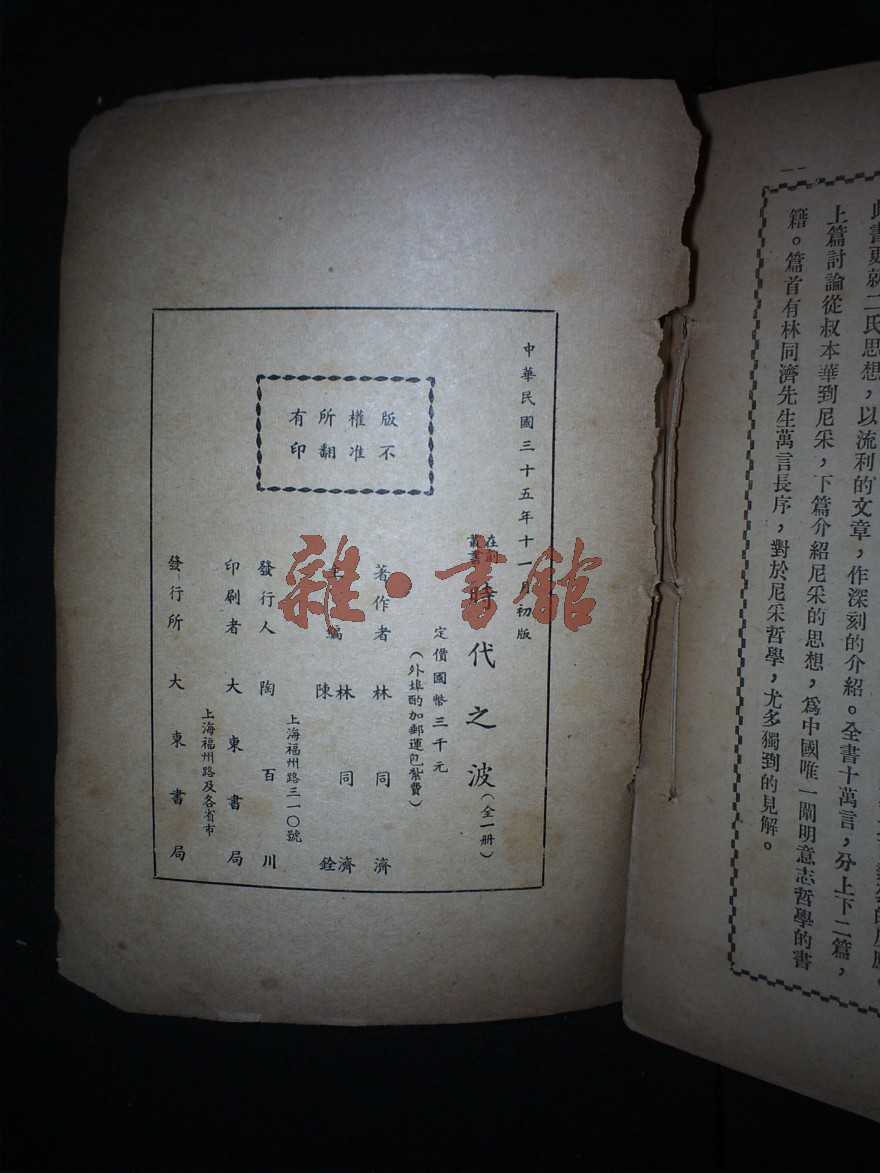 一一
此書更就二氏思想，以流利的文章，作深刻的介紹。全書十萬言，分上下二篇，
上篇討論從叔本華到尼采，下篇介紹尼采的思想，爲中國唯一闡明意志哲學的書
籍。篇首有林同濟先生萬言長序，對於尼采哲學，尤多獨到的見解。
中華民國三十五年十一月初版
在創叢書
時代之波（全一册）
定價國幣三千元
（外埠酌加郵運包紮費）
著作者 林同濟
主編 林同濟
陳銓
上海福州路三一〇號
發行人 陶百川
印刷者 大東書局
上海福州路及各省市
發行所 大東書局
版權所有
不准翻印
雜·書館